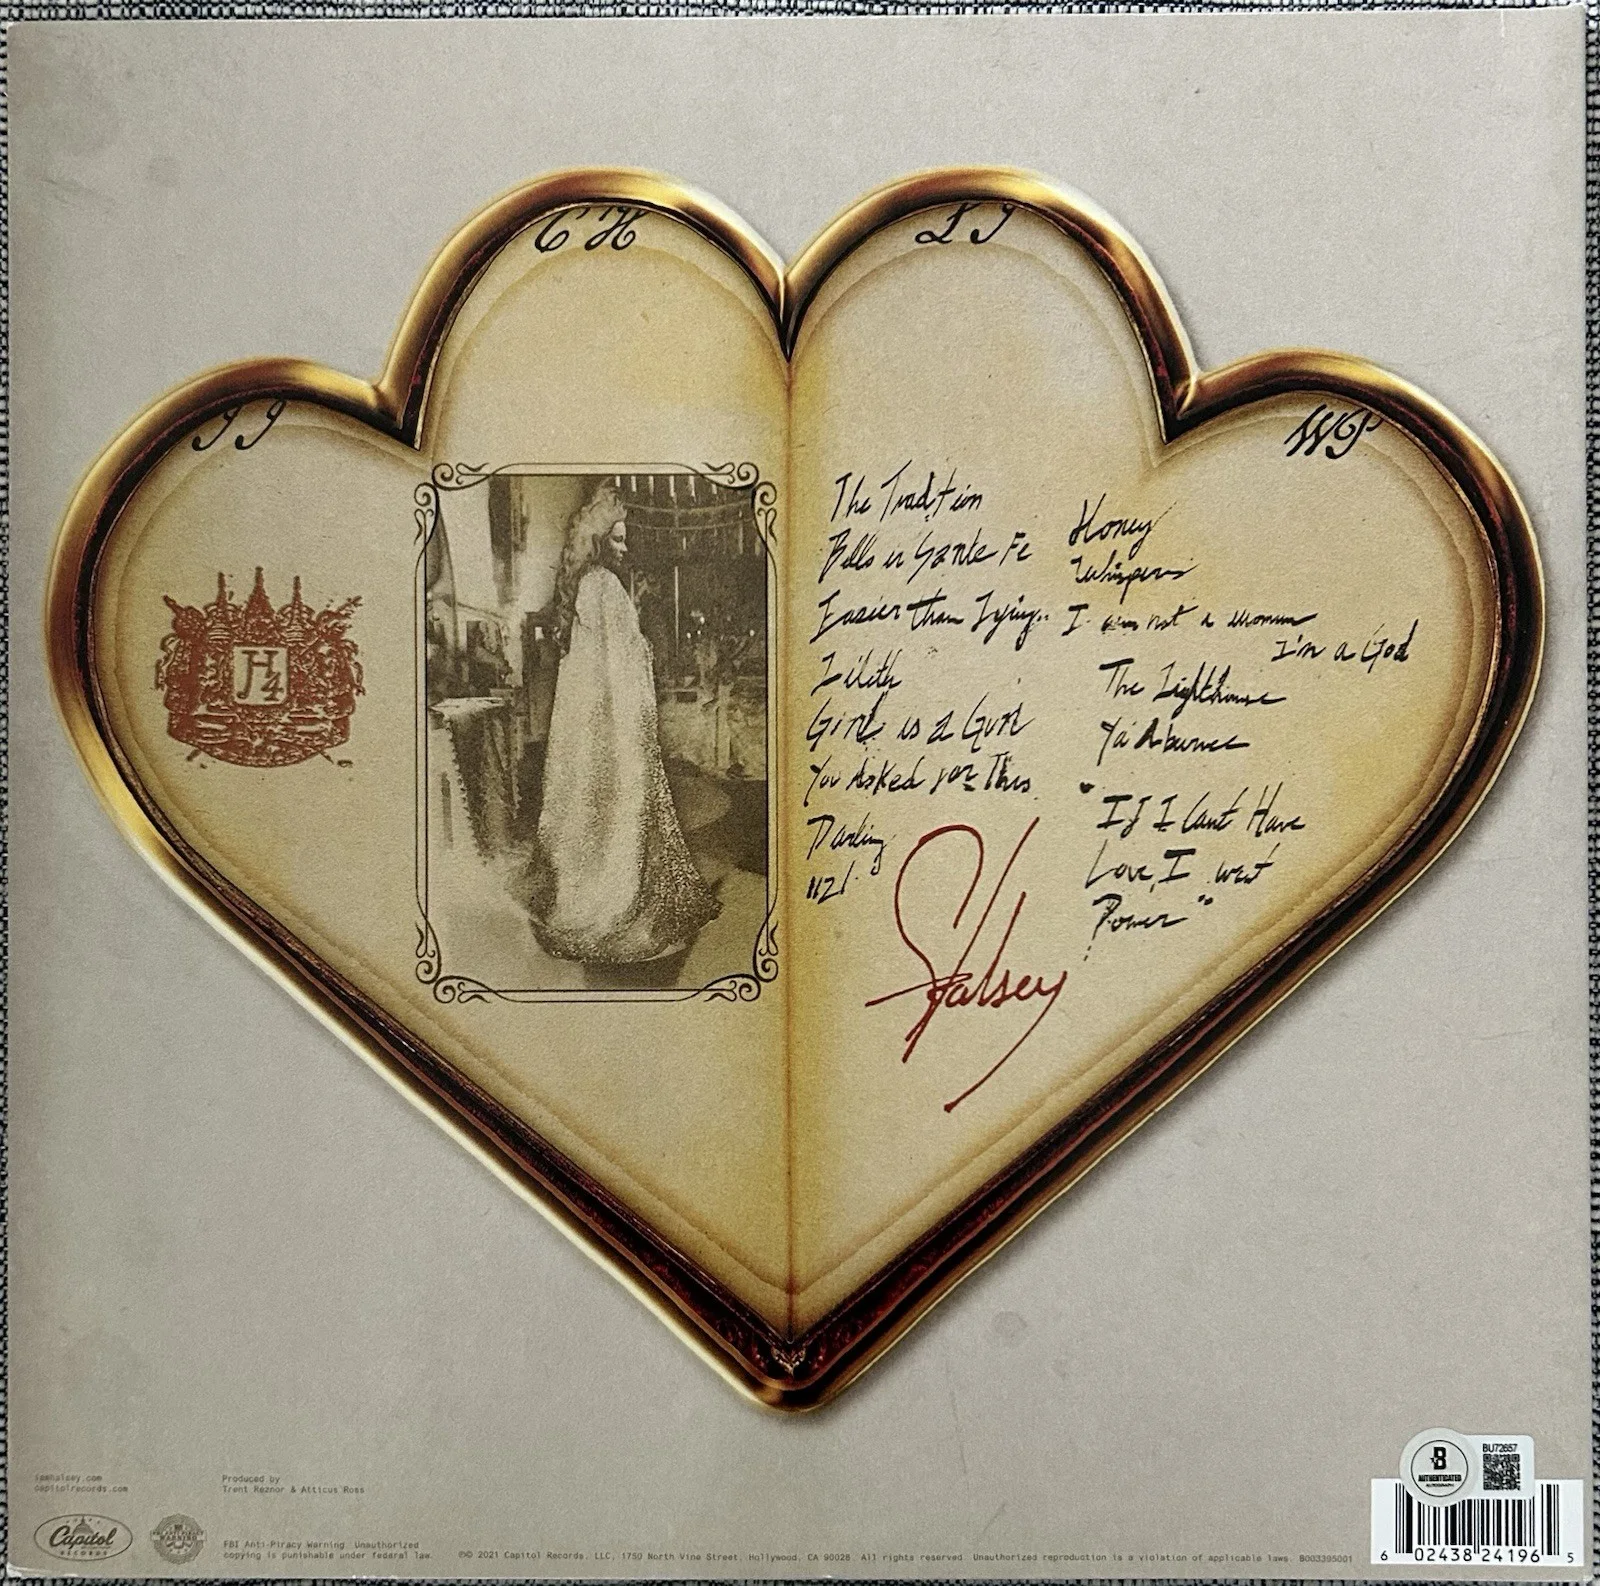 C H
L J
J J
W P
H4
The Tradition
Bells in Sante Fe
Easier than Lying..
Lilith
Girl is a Gun
You Asked for This
Darling
1121
Honey
Whispers
I am not a woman
I'm a God
The Lighthouse
Ya'Aburnee
"If I Can't Have
Love, I want
Power"
Halsey
iamhalsey.com
capitolrecords.com
Produced by
Trent Reznor & Atticus Ross
Capitol
RECORDS
FBI Anti-Piracy Warning: Unauthorized
copying is punishable under federal law.
℗© 2021 Capitol Records, LLC, 1750 North Vine Street, Hollywood, CA 90028. All rights reserved. Unauthorized reproduction is a violation of applicable laws. B003395001
B
AUTHENTICATED
BU72657
6 02438 24196 5